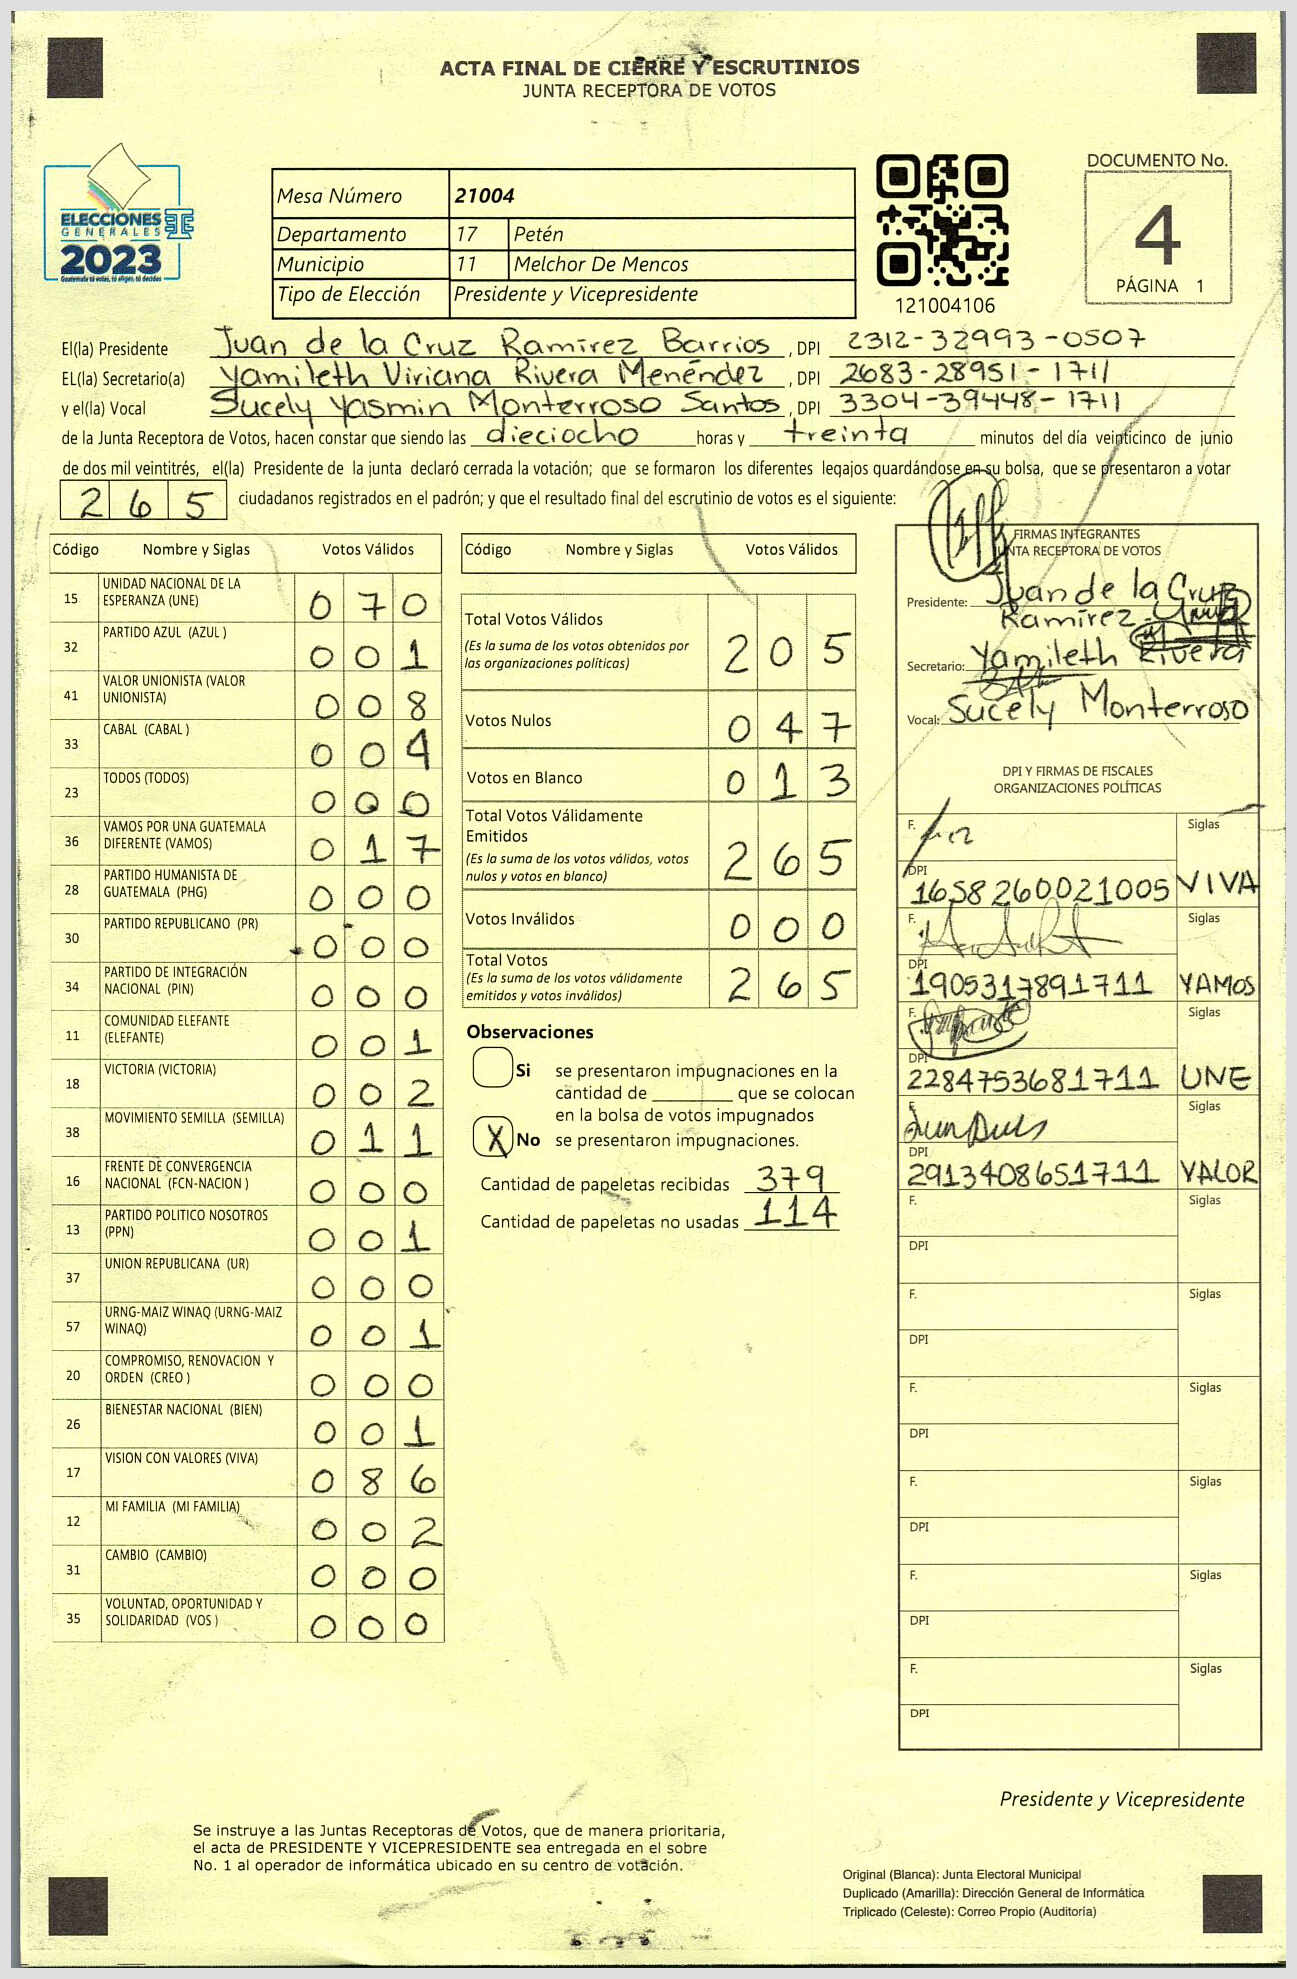 ACTA FINAL DE CIERRE Y ESCRUTINIOS
JUNTA RECEPTORA DE VOTOS
ELECCIONES
GENERALES
2023
Guatemala tú votas, tú eliges, tú decides
Mesa Número 21004
Departamento 17 Petén
Municipio 11 Melchor De Mencos
Tipo de Elección Presidente y Vicepresidente
121004106
DOCUMENTO No.
4
PÁGINA 1
El(la) Presidente Juan de la Cruz Ramírez Barrios , DPI 2312-32993-0507
EL(la) Secretario(a) Yamileth Viviana Rivera Menéndez , DPI 2683-28951-1711
y el(la) Vocal Sucely Yasmin Monterroso Santos , DPI 3304-39448-1711
de la Junta Receptora de Votos, hacen constar que siendo las dieciocho horas y treinta minutos del día veinticinco de junio
de dos mil veintitrés, el(la) Presidente de la junta declaró cerrada la votación; que se formaron los diferentes legajos quardándose en su bolsa, que se presentaron a votar
265 ciudadanos registrados en el padrón; y que el resultado final del escrutinio de votos es el siguiente:
Código Nombre y Siglas Votos Válidos
15 UNIDAD NACIONAL DE LA ESPERANZA (UNE) 070
32 PARTIDO AZUL (AZUL ) 001
41 VALOR UNIONISTA (VALOR UNIONISTA) 008
33 CABAL (CABAL ) 004
23 TODOS (TODOS) 000
36 VAMOS POR UNA GUATEMALA DIFERENTE (VAMOS) 017
28 PARTIDO HUMANISTA DE GUATEMALA (PHG) 000
30 PARTIDO REPUBLICANO (PR) 000
34 PARTIDO DE INTEGRACIÓN NACIONAL (PIN) 000
11 COMUNIDAD ELEFANTE (ELEFANTE) 001
18 VICTORIA (VICTORIA) 002
38 MOVIMIENTO SEMILLA (SEMILLA) 011
16 FRENTE DE CONVERGENCIA NACIONAL (FCN-NACION ) 000
13 PARTIDO POLITICO NOSOTROS (PPN) 001
37 UNION REPUBLICANA (UR) 000
57 URNG-MAIZ WINAQ (URNG-MAIZ WINAQ) 001
20 COMPROMISO, RENOVACION Y ORDEN (CREO ) 000
26 BIENESTAR NACIONAL (BIEN) 001
17 VISION CON VALORES (VIVA) 086
12 MI FAMILIA (MI FAMILIA) 002
31 CAMBIO (CAMBIO) 000
35 VOLUNTAD, OPORTUNIDAD Y SOLIDARIDAD (VOS ) 000
Código Nombre y Siglas Votos Válidos
Total Votos Válidos 205
(Es la suma de los votos obtenidos por
las organizaciones políticas)
Votos Nulos 047
Votos en Blanco 013
Total Votos Válidamente
Emitidos 265
(Es la suma de los votos válidos, votos
nulos y votos en blanco)
Votos Inválidos 000
Total Votos 265
(Es la suma de los votos válidamente
emitidos y votos inválidos)
Observaciones
Si se presentaron impugnaciones en la
cantidad de ________ que se colocan
en la bolsa de votos impugnados
X No se presentaron impugnaciones.
Cantidad de papeletas recibidas 379
Cantidad de papeletas no usadas 114
FIRMAS INTEGRANTES
JUNTA RECEPTORA DE VOTOS
Presidente: Juan de la Cruz
Ramírez
Secretario: Yamileth Rivera
Vocal: Sucely Monterroso
DPI Y FIRMAS DE FISCALES
ORGANIZACIONES POLÍTICAS
F. Siglas
DPI 1658260021005 VIVA
F. Siglas
DPI 1905317891711 VAMOS
F. Siglas
DPI 2284753681711 UNE
F. Siglas
DPI 2913408651711 VALOR
F. Siglas
DPI
F. Siglas
DPI
F. Siglas
DPI
F. Siglas
DPI
F. Siglas
DPI
F. Siglas
DPI
Presidente y Vicepresidente
Se instruye a las Juntas Receptoras de Votos, que de manera prioritaria,
el acta de PRESIDENTE Y VICEPRESIDENTE sea entregada en el sobre
No. 1 al operador de informática ubicado en su centro de votación.
Original (Blanca): Junta Electoral Municipal
Duplicado (Amarilla): Dirección General de Informática
Triplicado (Celeste): Correo Propio (Auditoría)